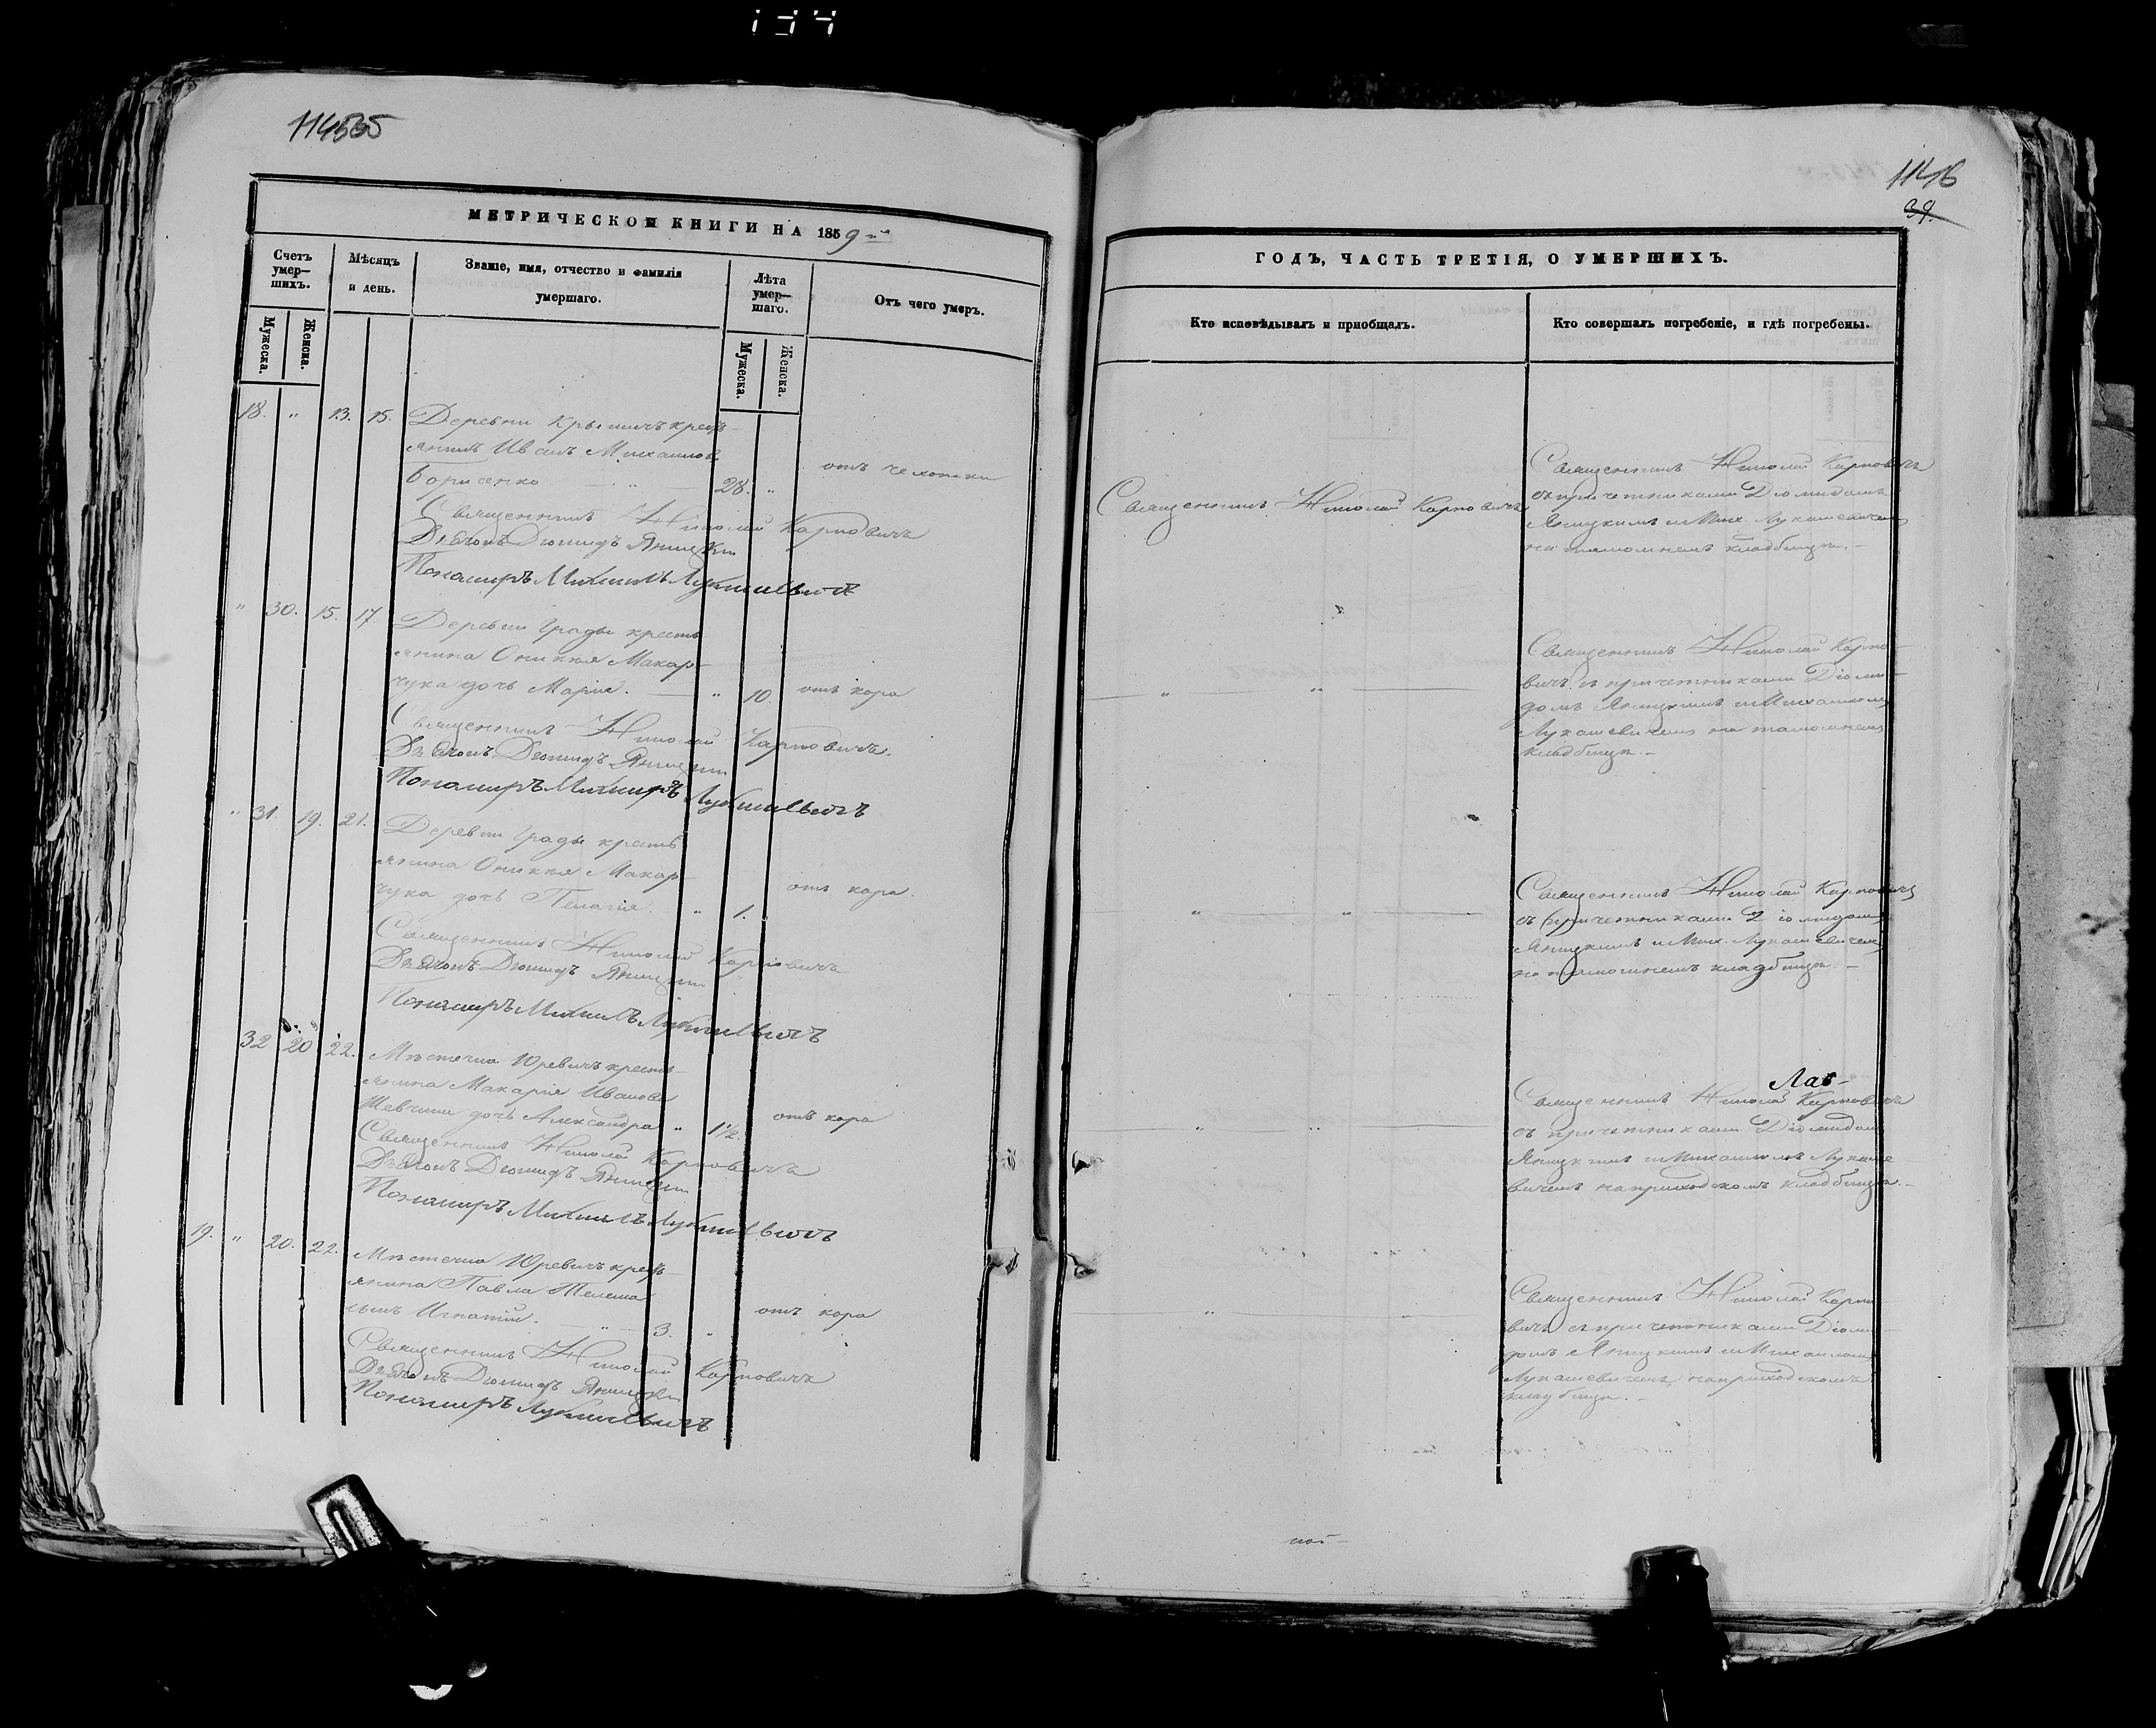 114565
МЕТРИЧЕСКОЙ КНИГИ НА 1859
Счетъ умер-шихъ.
Мужеска.
Женска.
Мѣсяцъ и день.
Званіе, имя, отчество и фамилія умершаго.
Лѣта умер-шаго.
Мужеска.
Женска.
Отъ чего умеръ.
18. " 13. 15. Деревни Крышичъ кресть-
янинъ Иванъ Михаиловъ
Борисенко 28. " отъ чехотки
Священникъ Николай Карповичъ
Діомидъ Яницкій
Пономаръ Михаилъ Лукашевичъ
" 30. 15. 17. Деревни Грады кресть
янина Оникія Макар-
чука дочь Марія. " 10. отъ кора
Священникъ Николай Карповичъ.
Діомидъ Яницкій
Пономаръ Михаилъ Лукашевичъ
" 31. 19. 21. Деревни Грады кресть
янина Оникія Макар-
чука дочь Пелагія. " 1. отъ кора.
Священникъ Николай Карповичъ
Діомидъ Яницкій
Пономаръ Михаилъ Лукашевичъ
32 20 22. Мѣстечка Юревичъ кресть-
янина Макарія Иванова
Шевчика дочь Александра " 1 1/2. отъ кора
Священникъ Николай Карповичъ
Діомидъ Яницкій
Пономаръ Михаилъ Лукашевичъ
19. " 20. 22. Мѣстечка Юревичъ кресть-
янина Павла Телеша
сынъ Игнатій. 3. " отъ кора
Священникъ Николай Карповичъ
Діомидъ Яницкій
Пономаръ Лукашевичъ
1146
39.
ГОДЪ, ЧАСТЬ ТРЕТІЯ, О УМЕРШИХЪ.
Кто исповѣдывалъ и пріобщалъ.
Кто совершалъ погребеніе, и гдѣ погребены.
Священникъ Николай Карповичъ
Священникъ Николай Карповичъ
съ причетниками Діомидомъ
Яницкимъ и Мих. Лукашевичемъ
на тамошнемъ кладбищѣ.-
Священникъ Николай Карпо-
вичъ съ причетниками Діоми-
домъ Яницкимъ и Михаиломъ
Лукашевичемъ на тамошнемъ
кладбищѣ.-
Священникъ Николай Карповичъ
съ причетниками Діомидомъ
Яницкимъ и Мих. Лукашевичемъ
на тамошнемъ кладбищѣ.-
Священникъ Николай Карповичъ
съ причетниками Діомидомъ
Яницкимъ и Михаиломъ Лукаше-
вичемъ на приходскомъ кладбищѣ.-
Священникъ Николай Карпо-
вичъ съ причетниками Діоми-
домъ Яницкимъ и Михаиломъ
Лукашевичемъ на приходскомъ
кладбищѣ.-